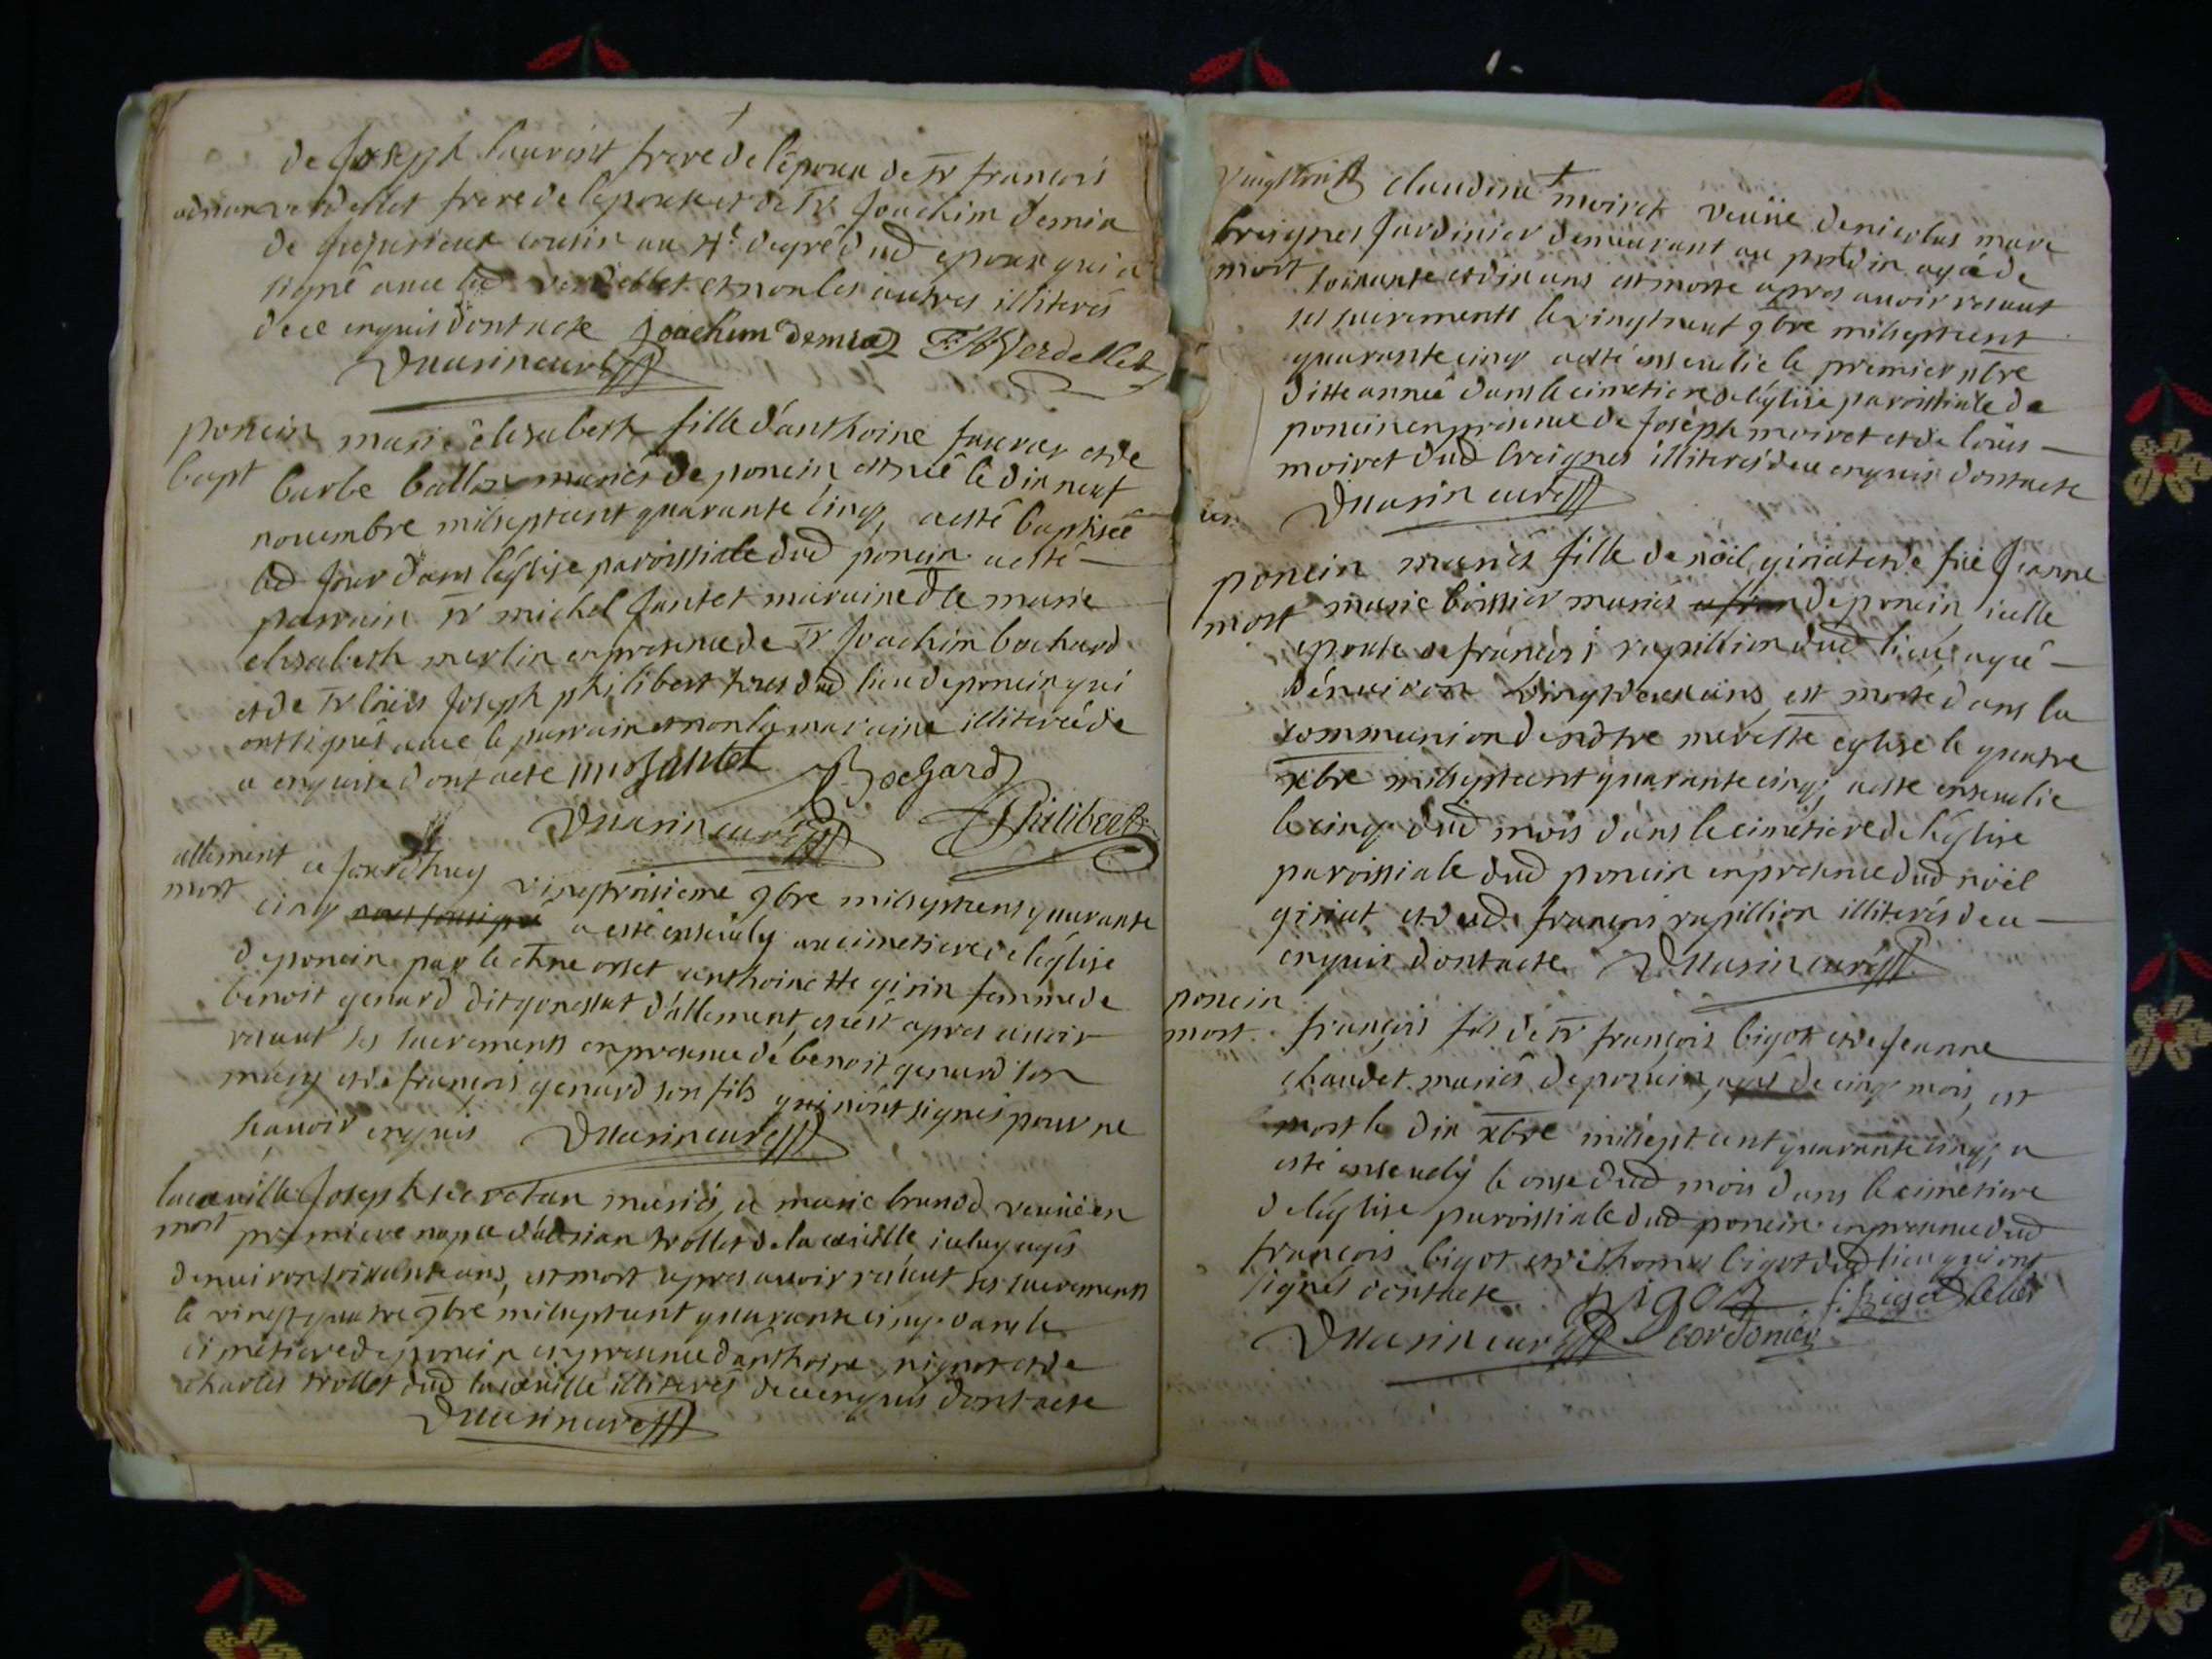 de Joseph laurent frere de l'epoux de Sr francois
adrian verdellet frere de l'epouse et de Sr Joachim demia
de Jujurieux cousin au 4e degré dud epoux qui a
signé avec led verdellet et non les autres illiterés
de ce enquis dont acte Joachim demia Verdellet
Marin curé
poncin marie élisabeth fille d'anthoine et de
bapt barbe ballon mariés de poncin, est née le dix neuf
novembre mil sept cent quarante cinq, a esté baptisée
led jour dans l'église paroissiale dud poncin a esté
parrain Sr michel Jantet maraine dlle marie
elisabeth merlin en presence de Sr Joachim bochard
et de Sr loüis Joseph philibert tous dud lieu de poncin qui
ont signés avec le parrain et non la maraine illiterée de
ce enquise dont acte Jantet Bochard
Marin curé Philibert
allement ce jourd'huy vingt troisieme 9bre mil sept cent quarante
mort cinq a esté enseuely au cimetiere de l'église
de poncin par le orset anthoinette girin femme de
benoit genard dit d'allement, apres avoir
receut ses sacrements en presence de benoit genard son
mary et de francois genard son fils qui n'ont signés pour ne
scavoir enquis Marin curé
lacueille Joseph secretan mariés, a marie brunod veuüe en
mort premiere nopce d'adrian trollet de la cueille iceluy agés
d'enuiron soixante ans, est mort apres avoir receut ses sacrements
le vingt quatre 9bre mil sept cent quarante cinq dans le
cimetiere de poncin en presence d'anthoine et de
charles trollet dud la cueille illiterés de ce enquis dont acte
Marin curé
claudine moiret veuüe de nicolas marc
breignes Jardinier demeurant au agée de
mort soixante et dix ans est morte apres avoir receut
ses sacrements le vingt neuf 9bre mil sept cent
quarante cinq a esté enseuelie le premier xbre
ditte année dans le cimetiere de l'église paroissiale de
poncin en presence de Joseph moiret et de loüis
moiret dud breignes illiterés de ce enquis dont acte
Marin curé
poncin mariés fille de noël giriat et de füe Jeanne
mort marie boissier mariés de poncin, icelle
epouse de francois rapillion dud lieu, agée
d'enuiron vingt deux ans, est morte dans la
communion de nostre mere ste eglise le quatre
xbre mil sept cent quarante cinq, a este enseuelie
le cinq dud mois dans le cimetiere de l'église
paroissiale dud poncin en presence dud noël
giriat et dud francois rapillion illiterés de ce
enquis dont acte Marin curé
poncin
mort francois fils de Sr francois bigot et de Jeanne
chaudet mariés de poncin, agé de cinq mois, est
mort le dix xbre mil sept cent quarante cinq, a
esté enseuely le onse dud mois dans le cimetiere
de l'église paroissiale dud poncin en presence dud
francois bigot et de thomas bigot dud lieu qui ont
signés dont acte bigot
Marin curé cordonier